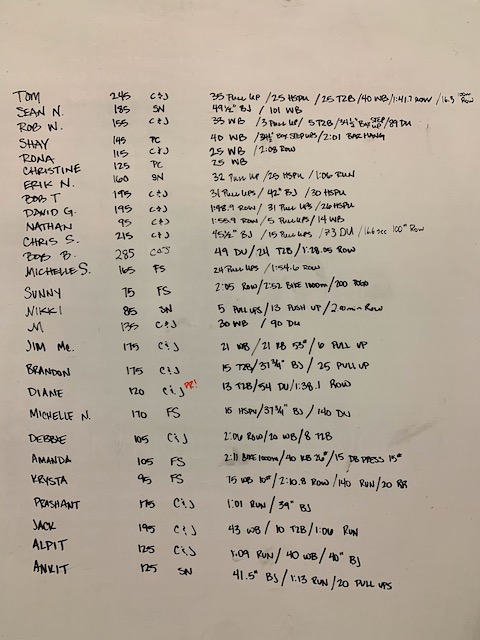 TOM 245 C&J 35 PULL UP / 25 HSPU / 25 T2B / 40 WB / 1:41.7 ROW / 16.3 100m ROW
SEAN N. 185 SN 49½" BJ / 101 WB
ROB W. 155 C&J 33 WB / 3 PULL UP / 5 T2B / 34½" BOX STEP UP / 89 DU
SHAY 145 PC 40 WB / 34½" BOX STEP UPS / 2:01 BAR HANG
RONA 115 C&J 25 WB / 2:08 ROW
CHRISTINE 125 PC 25 WB
ERIK N. 160 SN 32 PULL UP / 25 HSPU / 1:06 RUN
BOB T 195 C&J 31 PULL UPS / 42" BJ / 30 HSPU
DAVID G. 195 C&J 1:48.9 ROW / 31 PULL UPS / 26 HSPU
NATHAN 95 C&J 1:55.9 ROW / 5 PULL UPS / 14 WB
CHRIS S. 215 C&J 45½" BJ / 15 PULL UPS / 73 DU / 16.6 sec 100m ROW
BOB B. 285 C&J 49 DU / 24 T2B / 1:28.05 ROW
MICHELLE S. 165 FS 24 PULL UPS / 1:54.6 ROW
SUNNY 75 FS 2:05 ROW / 2:52 BIKE 1000m / 200 POGO
NIKKI 85 SN 5 PULL UPS / 13 PUSH UP / 2:00 min ROW
M 135 C&J 30 WB / 90 DU
JIM Mc. 175 C&J 21 WB / 21 KB 53# / 6 PULL UP
BRANDON 175 C&J 15 T2B / 37¾" BJ / 25 PULL UP
DIANE 120 C&J PR! 13 T2B / 54 DU / 1:38.1 ROW
MICHELLE N. 170 FS 15 HSPU / 37¾" BJ / 140 DU
DEBBIE 105 C&J 2:06 ROW / 20 WB / 8 T2B
AMANDA 105 FS 2:11 BIKE 1000m / 40 KB 26# / 15 DB PRESS 15#
KRYSTA 95 FS 75 WB 10# / 2:10.8 ROW / 140 RUN / 20 RR
PRASHANT 175 C&J 1:01 RUN / 39" BJ
JACK 195 C&J 43 WB / 10 T2B / 1:06 RUN
ALPIT 125 C&J 1:09 RUN / 40 WB / 40" BJ
ANKIT 125 SN 41.5" BJ / 1:13 RUN / 20 PULL UPS